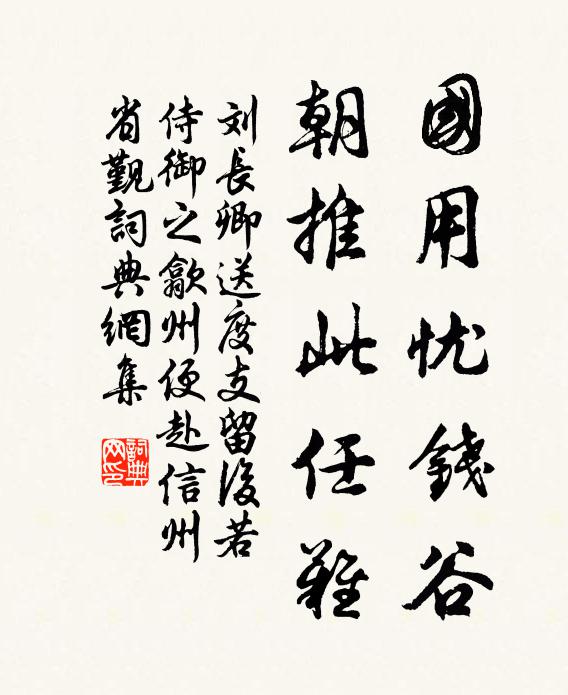 國用忧錢谷
朝推此任難
刘長卿送度支留後若
侍御之歙州便赴信州
省觐詞典網集
詞典網印